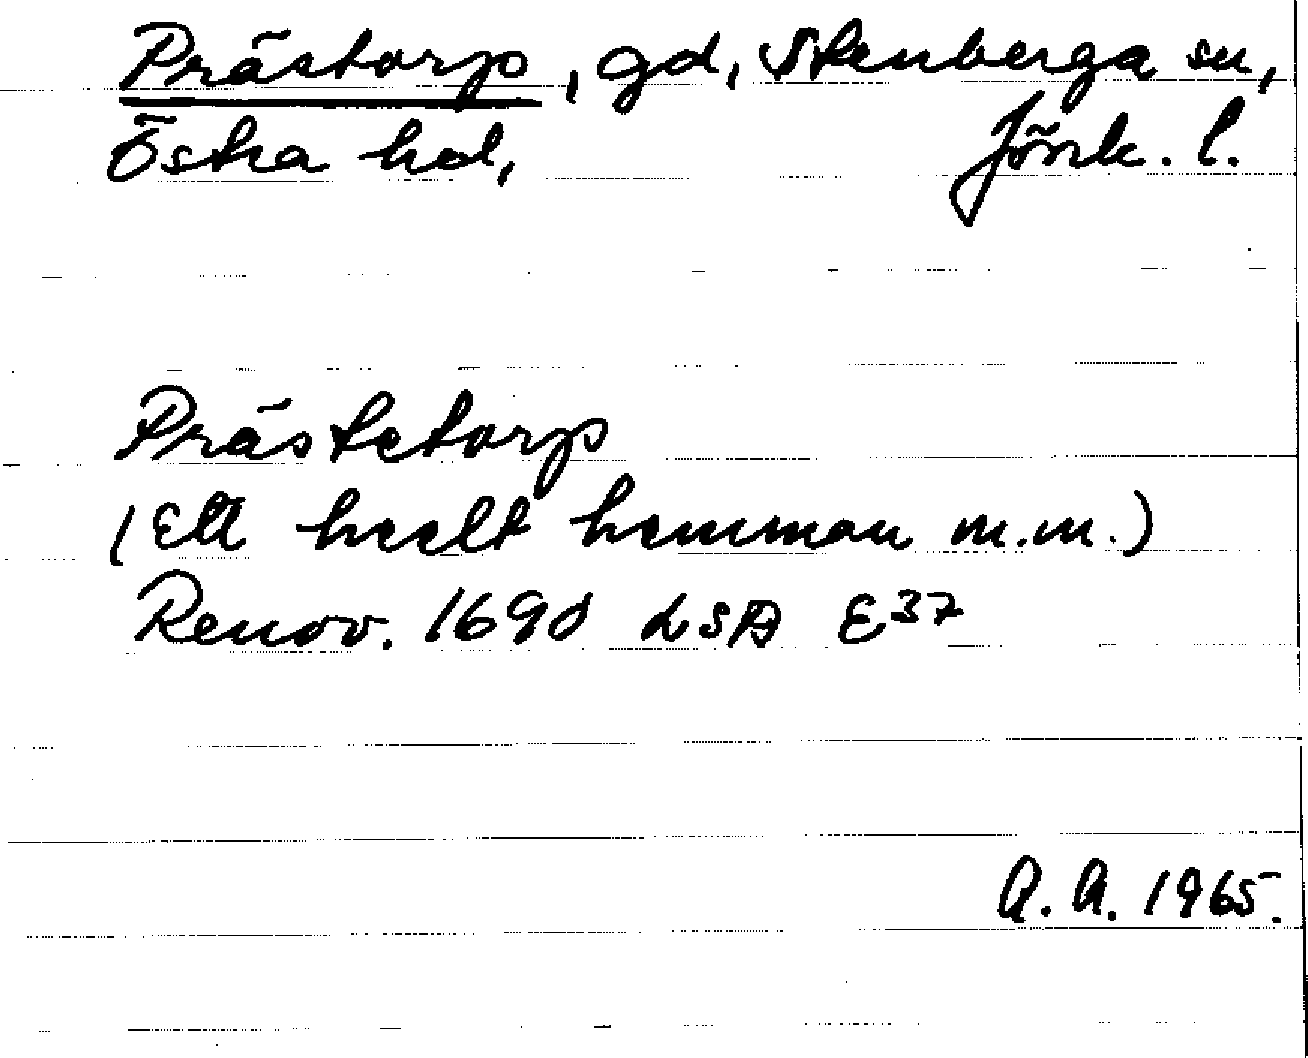 Prästorp, gd, Stenberga sn,
Östra hd, Jönk. l.
Prästetorp
(Ett heelt hemman m.m.)
Renov. 1690 LSA E37
A. A. 1965.